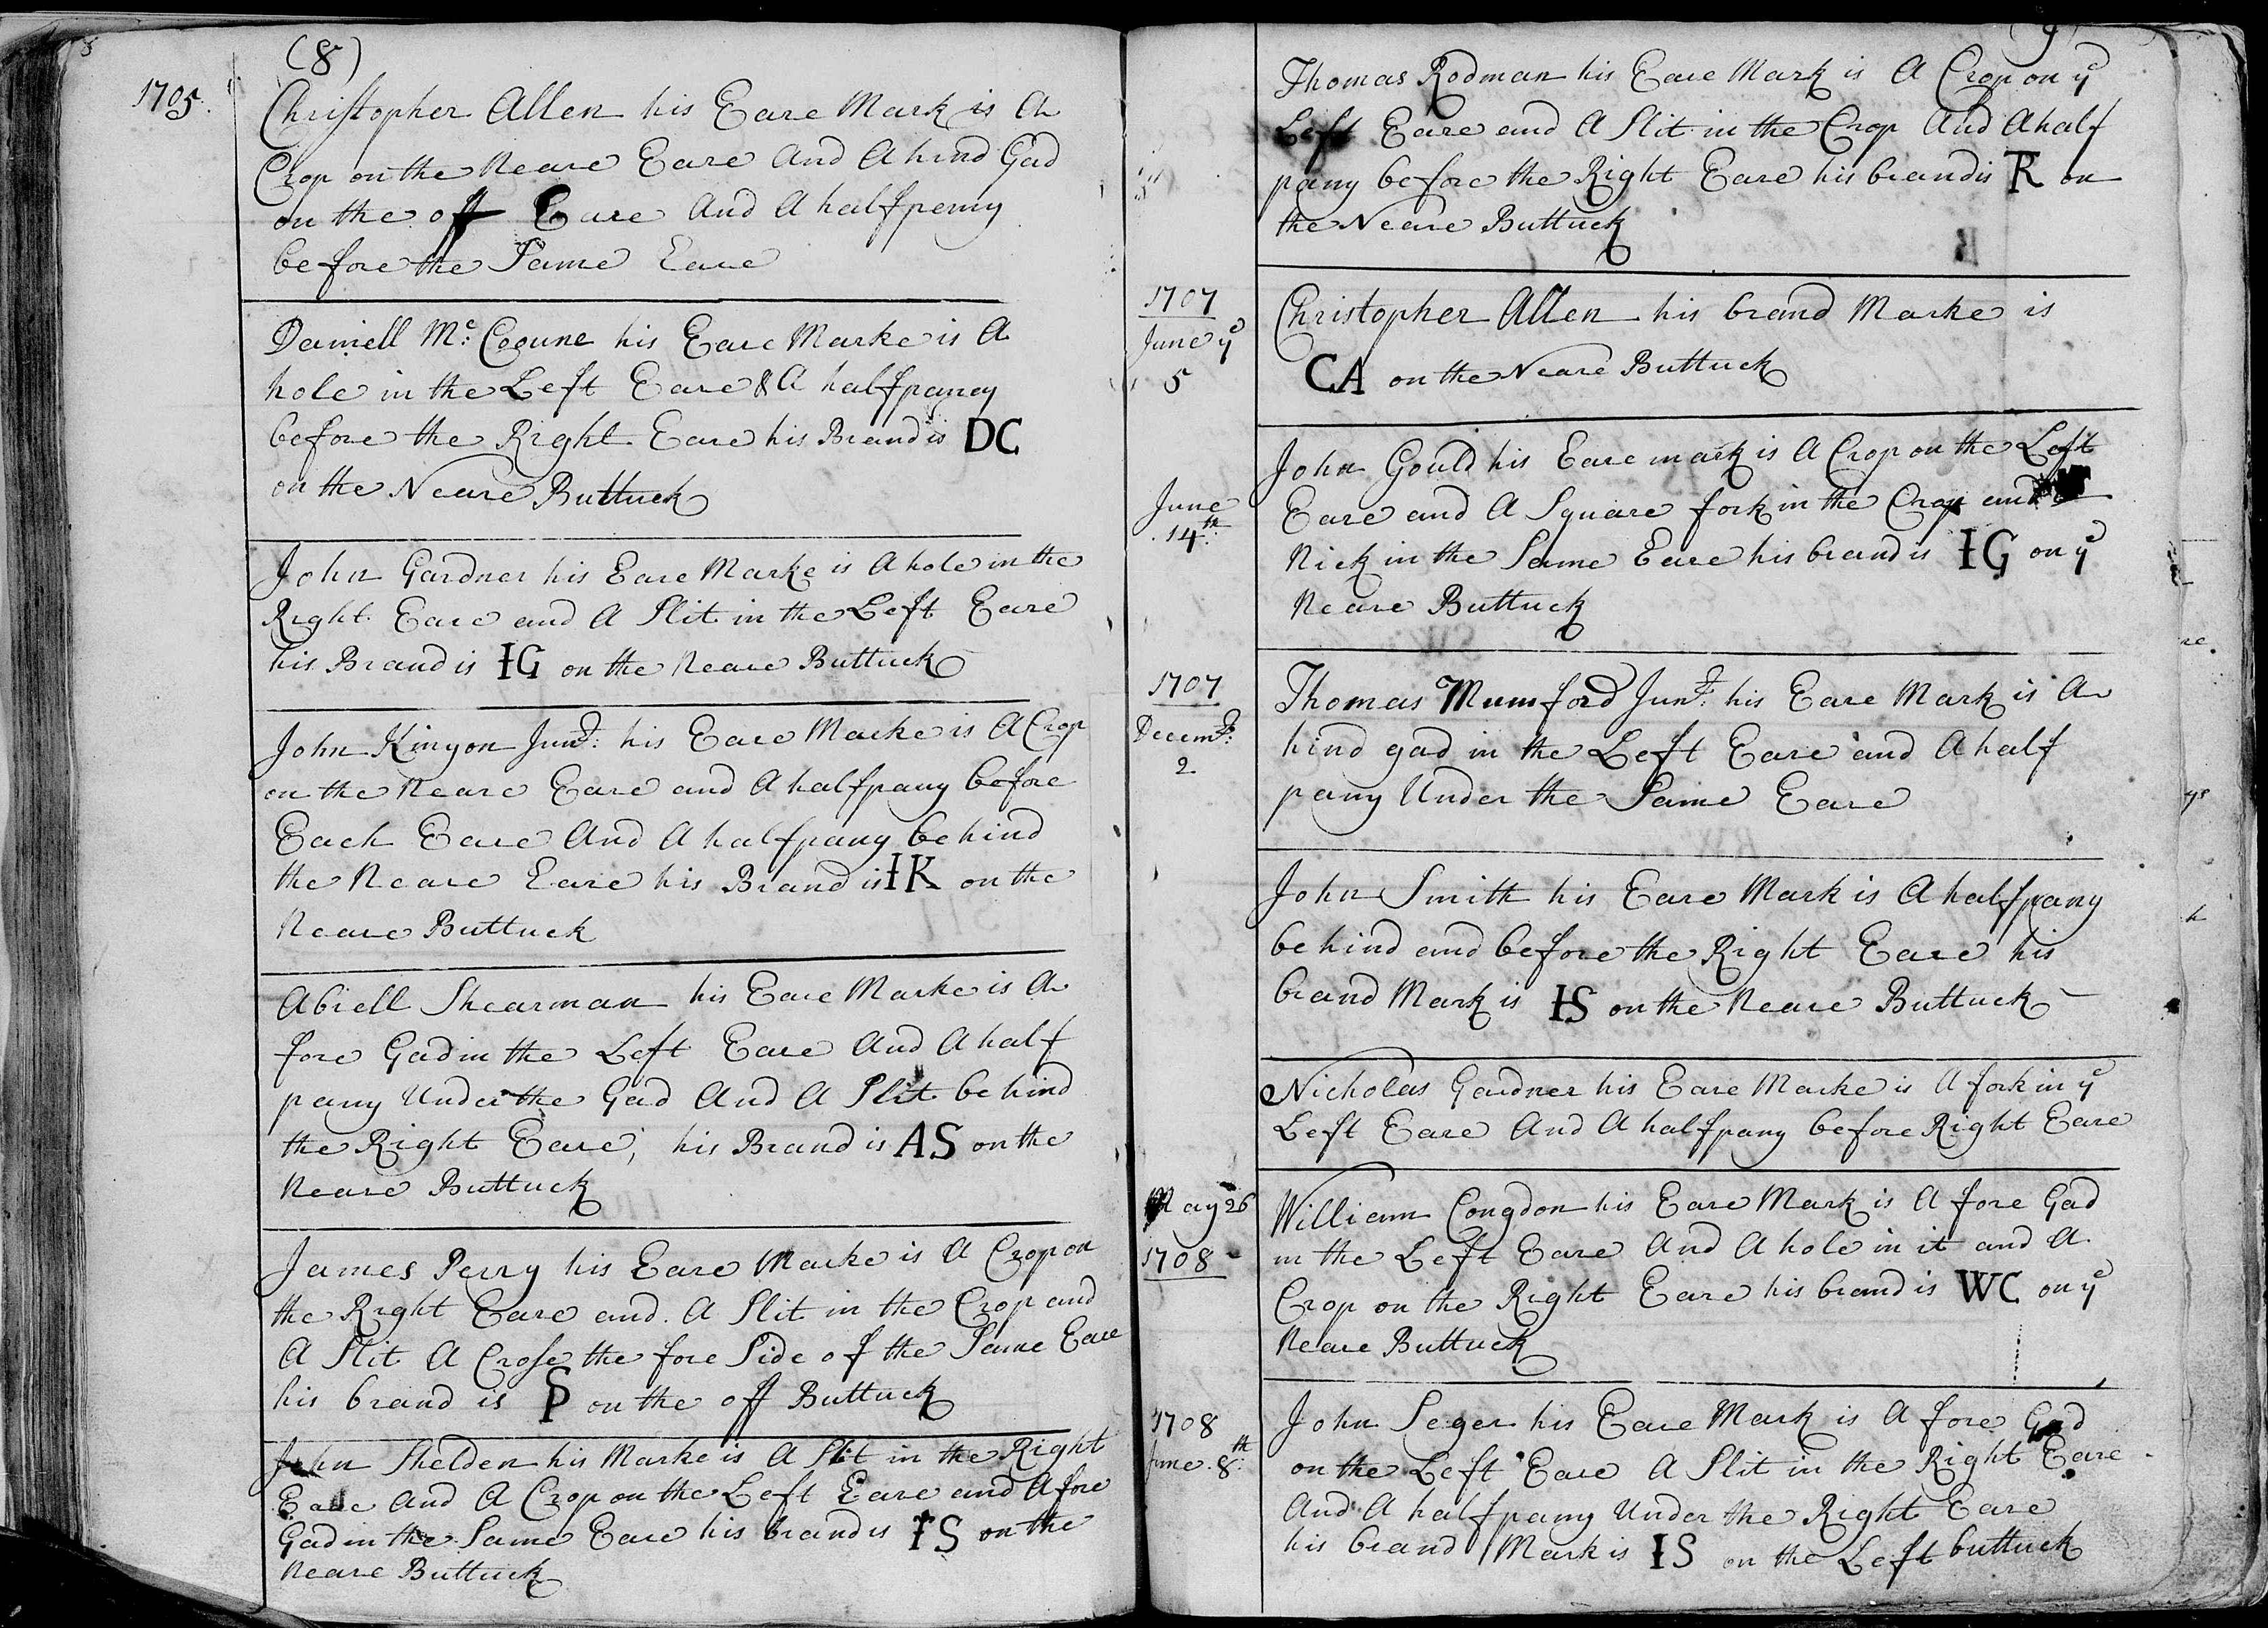 8
(8)
1705.
Christopher Allen his Eare Mark is A
Crop on the Neare Eare And A hind Gad
on the off Eare And A halfpenny
before the Same Eare
Daniell Mc: Cooune his Eare Marke is A
hole in the Left Eare & A halfpaney
before the Right Eare his Brand is DC
on the Neare Buttuck
John Gardner his Eare Marke is A hole in the
Right Eare and A Slit in the Left Eare
his Brand is IG on the Neare Buttuck
John Kinyon Junr: his Eare Marke is A Crop
on the Neare Eare and A halfpany before
Each Eare And A halfpany behind
the Neare Eare his Brand is IK on the
Neare Buttuck
Abiell Shearman his Eare Marke is A
fore Gad in the Left Eare And A half
pany Under the Gad And A Slit behind
the Right Eare, his Brand is AS on the
Neare Buttuck
James Perry his Eare Marke is A Crop on
the Right Eare and A Slit in the Crop and
A Slit A Crose the fore Side of the Same Eare
his brand is P on the off Buttuck
John Shelden his Marke is A Slit in the Right
Eare And A Crop on the Left Eare and A fore
Gad in the Same Eare his brand is IS on the
Neare Buttuck
9
Thomas Rodman his Eare Mark is A Crop on ye
Left Eare and A Slit in the Crop And A half
pany before the Right Eare his brand is TR on
the Neare Buttuck
1707
June ye
5
Christopher Allen his brand Marke is
CA on the Neare Buttuck
June
14th
John Gould his Eare mark is A Crop on the Left
Eare and A Square fork in the Crop and
Nick in the Same Eare his brand is IG on ye
Neare Buttuck
1707
Decemr:
2
Thomas Mumford Junr: his Eare Mark is A
hind gad in the Left Eare and A half
pany Under the Same Eare
John Smith his Eare Mark is A halfpany
behind and before the Right Eare his
brand Mark is IS on the Neare Buttuck
Nicholas Gardner his Eare Marke is A fork in ye
Left Eare And A halfpany before Right Eare
May 26
1708
William Congdon his Eare Mark is A fore Gad
in the Left Eare And A hole in it and A
Crop on the Right Eare his brand is WC on ye
Neare Buttuck
1708
June 8th:
John Seger his Eare Mark is A fore Gad
on the Left Eare A Slit in the Right Eare
And A halfpany Under the Right Eare
his brand Mark is IS on the Left buttuck